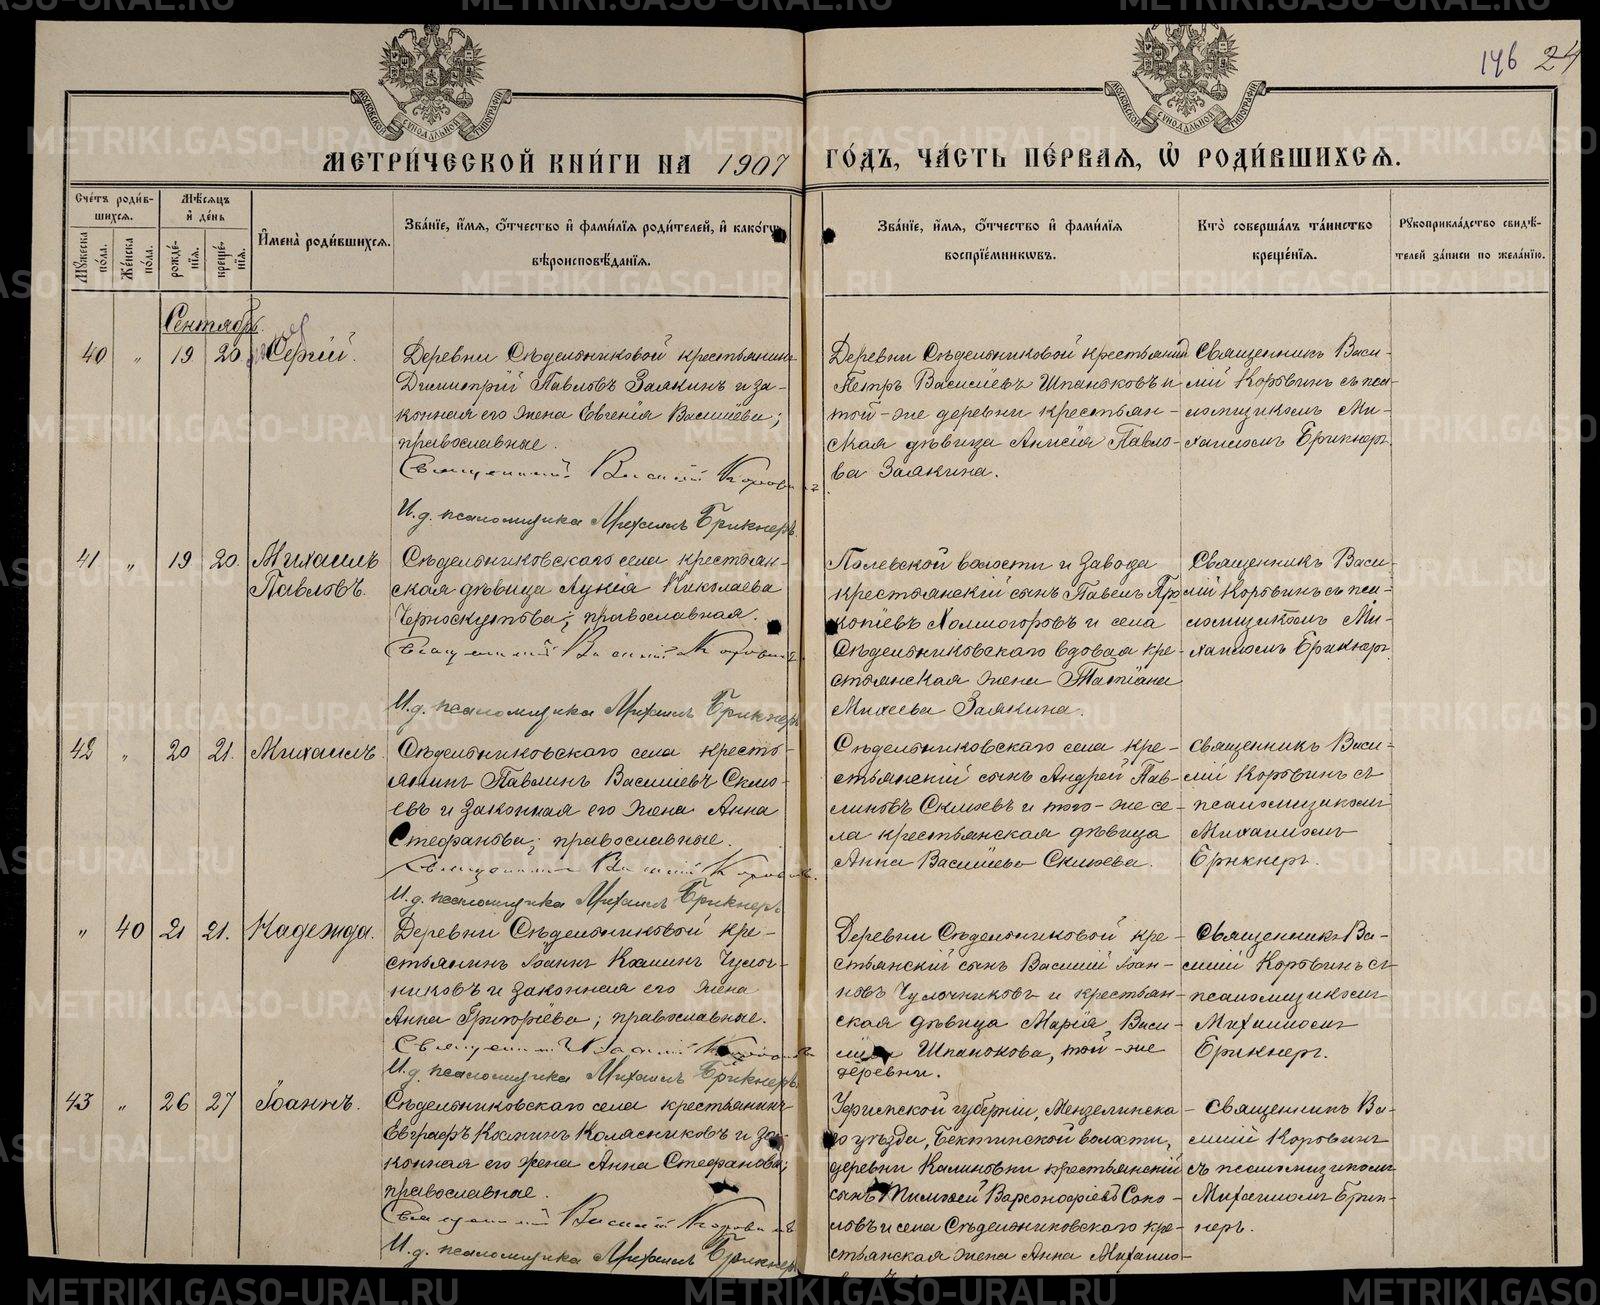 146 24
МЕТРИ́ЧЕСКОЙ КНИ́ГИ НА 1907 ГО́ДЪ, ЧА́СТЬ ПЕ́РВАЯ, Ѡ҆ РОДИ́ВШИХСЯ.
Счетъ роди́вшихся.
Му́жеска по́ла.
Же́нска по́ла.
Мѣ́сяцъ и҆ де́нь
рожде́нїя.
креще́нїя.
И҆мена̀ роди́вшихся.
Зва́нїе, и҆́мя, ѻ҆́тчество и҆ фами́лїя роди́телей, и҆ како́гѡ
вѣроисповѣ́данїя.
Зва́нїе, и҆́мя, ѻ҆́тчество и҆ фами́лїя
воспрїе́мниковъ.
Кто̀ соверша́лъ та́инство
креще́нїя.
Рукоприкла́дство свидѣ́-
телей за́писи по жела́нїю.
Сентябрь.
40 „ 19 20 Сергій.
Деревни Сѣдельниковой крестьянинъ
Димитрій Павловъ Заякинъ и за-
конная его жена Евгенія Васильева;
православные.
Священникъ Василій Коровинъ.
И.д. псаломщика Михаилъ Брикнеръ
Деревни Сѣдельниковой крестьянинъ
Петръ Васильевъ Шпаньковъ и
той-же деревни крестьян-
ская дѣвица Анисія Павло-
ва Заякина.
Священникъ Васи-
лій Коровинъ съ пса-
ломщикомъ Ми-
хаиломъ Брикнеръ.
41 „ 19 20. Михаилъ
Павловъ.
Сѣдельниковскаго села крестьян-
ская дѣвица Лукія Николаева
Черноскутова; православная.
Священникъ Василій Коровинъ.
И.д. псаломщика Михаилъ Брикнеръ
Полевской волости и завода
крестьянскій сынъ Павелъ Про
копіевъ Холмогоровъ и села
Сѣдельниковскаго вдовая кре-
стьянская жена Татіана
Михеева Заякина.
Священникъ Васи-
лій Коровинъ съ пса-
ломщикомъ Ми-
хаиломъ Брикнеръ
42 „ 20 21. Михаилъ.
Сѣдельниковскаго села кресть-
янинъ Павлинъ Васильевъ Скло-
евъ и законная его жена Анна
Стефанова; православные.
Священникъ Василій Коровинъ.
И.д. псаломщика Михаилъ Брикнеръ
Сѣдельниковскаго села кре-
стьянскій сынъ Андрей Пав-
линовъ и того-же се-
ла крестьянская дѣвица
Анна Васильева
Священникъ Васи-
лій Коровинъ съ
псаломщикомъ
Михаиломъ
Брикнеръ.
„ 40 21 21. Надежда.
Деревни Сѣдельниковой кре-
стьянинъ Іоаннъ Чулоч-
никовъ и законная его жена
Анна Григорьева; православные.
Священникъ Василій Коровинъ
И.д. псаломщика Михаилъ Брикнеръ
Деревни Сѣдельниковой кре-
стьянскій сынъ Василій Іоан-
новъ Чулочниковъ и крестьян-
ская дѣвица Марія Васи-
льева Шпанькова, той-же
деревни.
Священникъ Ва-
силій Коровинъ съ
псаломщикомъ
Михаиломъ
Брикнеръ.
43 „ 26 27 Іоаннъ.
Сѣдельниковскаго села крестьянинъ
Евграфъ Козминъ Колясниковъ и за-
конная его жена Анна Стефанова;
православные.
Священникъ Василій Коровинъ
И.д. псаломщика Михаилъ Брикнеръ
Уфимской губерніи, Мензелинска-
го уѣзда, волости,
деревни Калиновки крестьянскій
сынъ Тимофей Варсонофіевъ Соко-
ловъ и села Сѣдельниковскаго кре-
стьянская жена Анна Михаило-
Священникъ Ва-
силій Коровинъ
съ псаломщикомъ
Михаиломъ Брик-
неръ.
METRIKI.GASO-URAL.RU